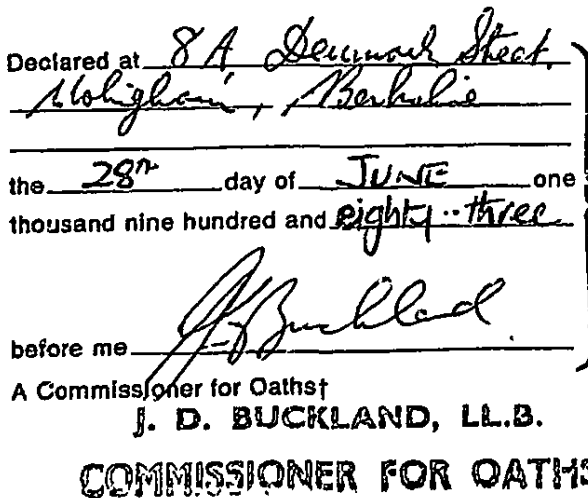 Declared at 8A Denmark Street,
Wokingham, Berkshire
the 28th day of JUNE one
thousand nine hundred and eighty-three
before me J D Buckland
A Commissioner for Oaths†
J. D. BUCKLAND, LL.B.
COMMISSIONER FOR OATHS